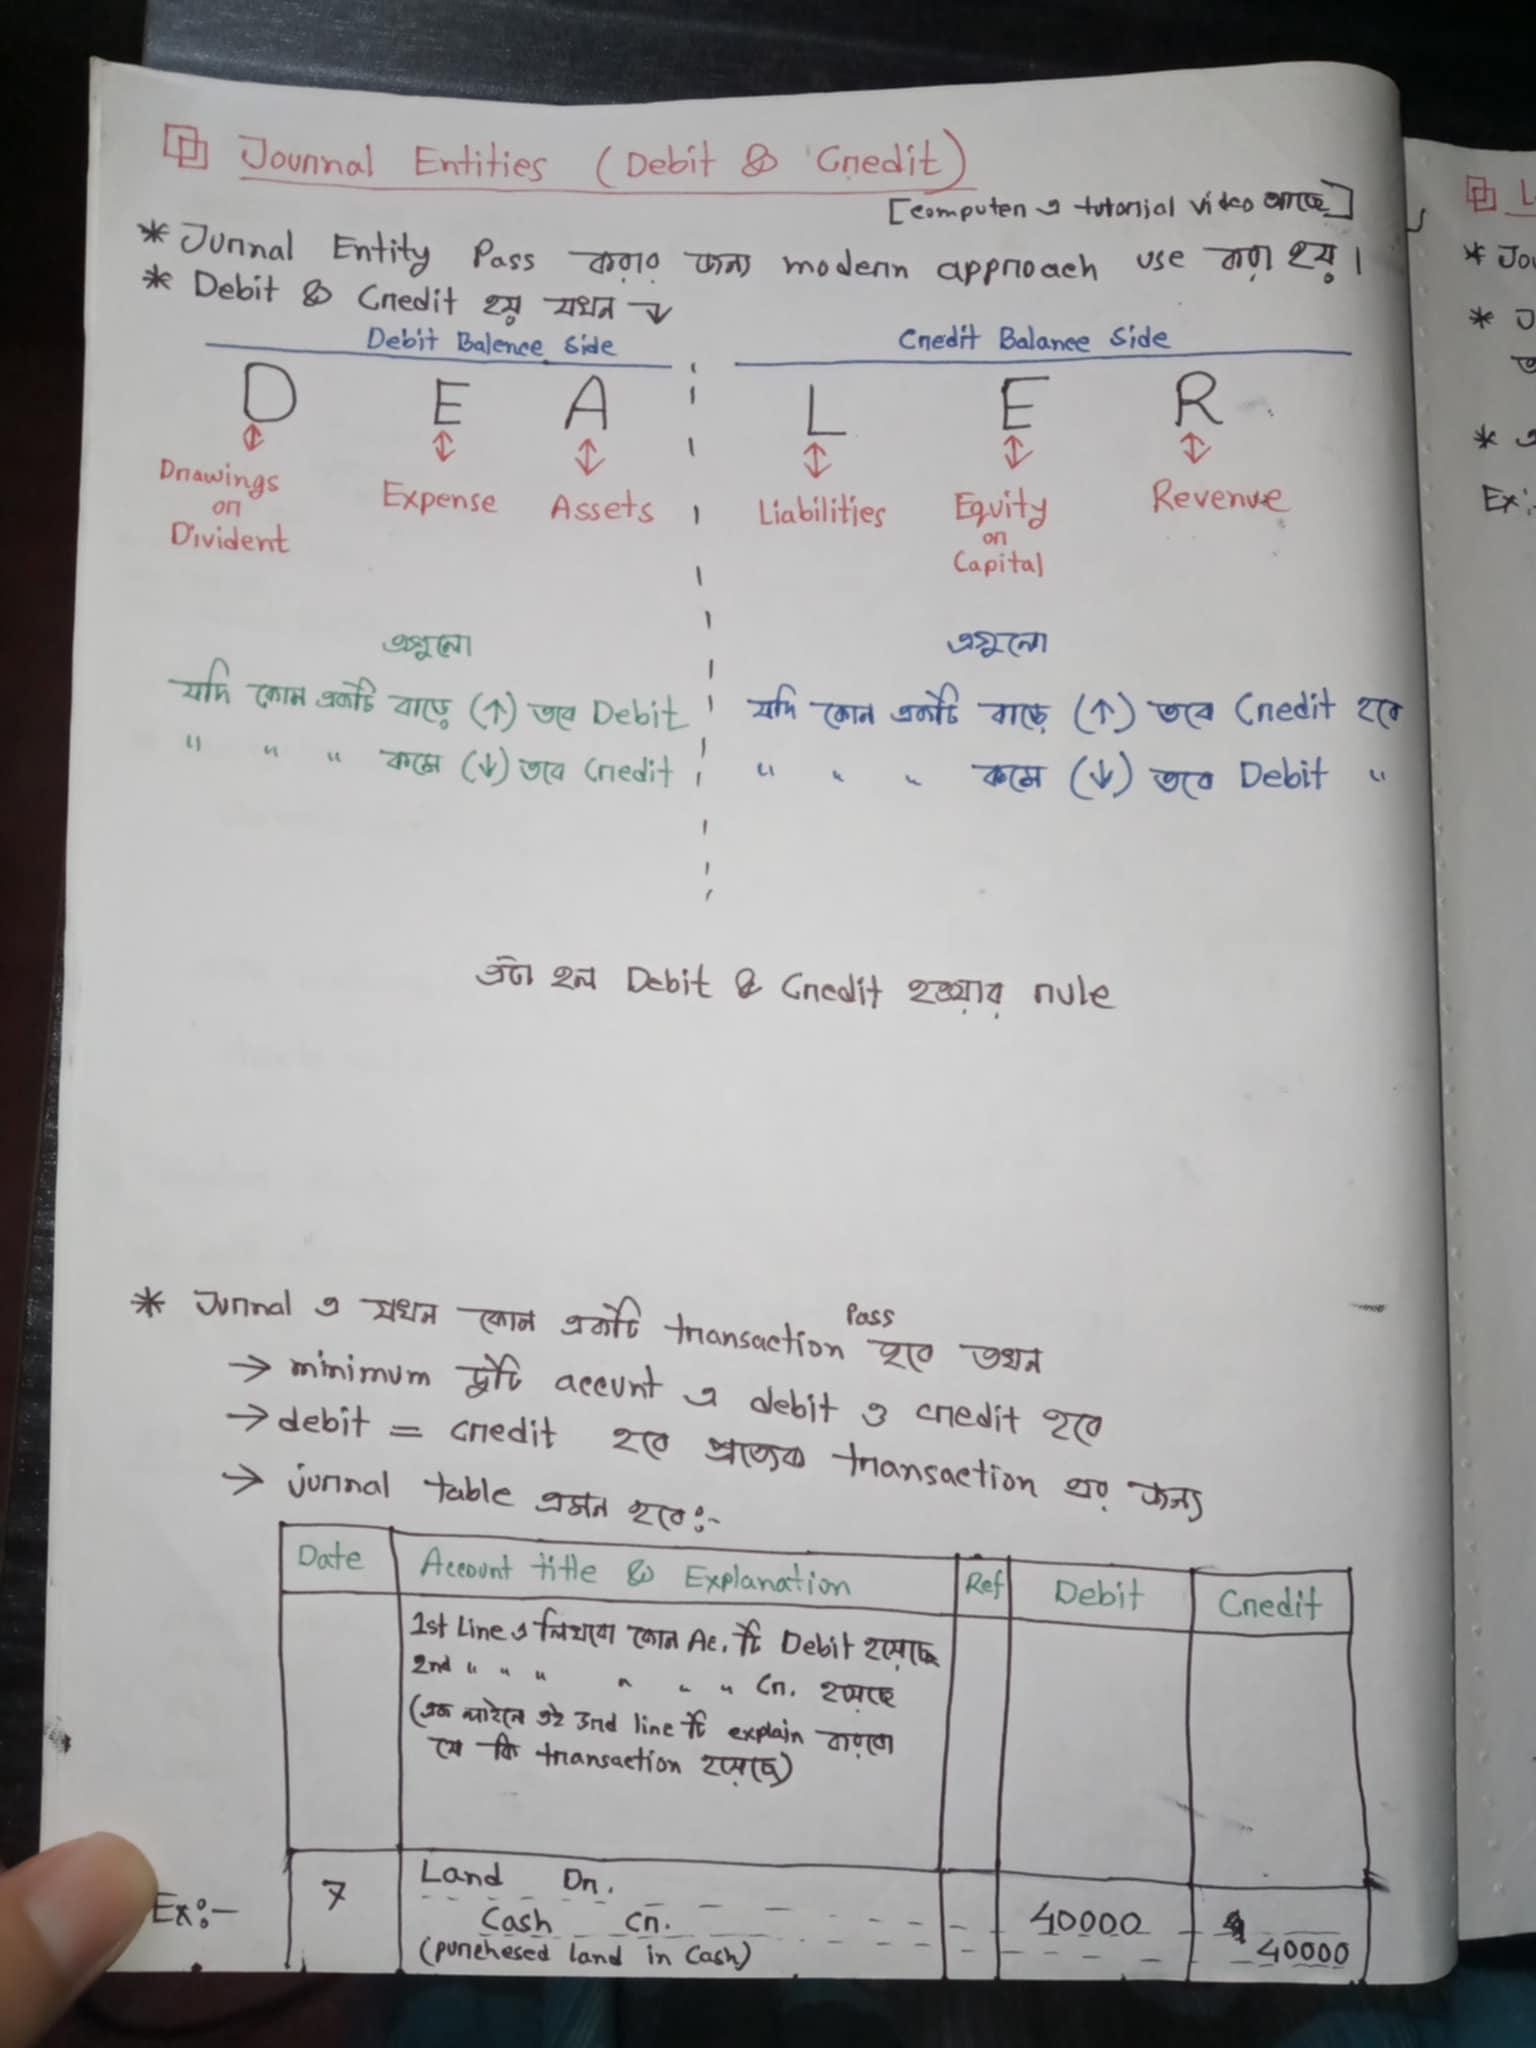 Journal Entities (Debit & Credit)
[computer এ tutorial video আছে]
* Jurnal Entity Pass করার জন্য modern approach use করা হয়।
* Debit & Credit হয় যখন ↓
Debit Balence Side
Credit Balance Side
D E A L E R
Drawings or Divident
Expense
Assets
Liabilities
Equity or Capital
Revenue
এগুলো
যদি কোন একটি বাড়ে (↑) তবে Debit
" " " কমে (↓) তবে Credit
এগুলো
যদি কোন একটি বাড়ে (↑) তবে Credit হবে
" " " কমে (↓) তবে Debit "
এটা হল Debit & Credit হওয়ার rule
* Jurnal এ যখন কোন একটি transaction Pass হবে তখন
→ minimum দুটি accunt এ debit ও credit হবে
→ debit = credit হবে প্রত্যেক transaction এর জন্য
→ jurnal table এমন হবে:-
Date Account title & Explanation Ref Debit Credit
1st Line এ লিখবো কোন Ac. টি Debit হয়েছে
2nd " " " " " " Cr. হয়েছে
(এক লাইনে এই 3rd line টি explain করবো
যে কি transaction হয়েছে)
Ex:- 7 Land Dr. 40000
Cash Cr. 40000
(purchesed land in Cash)
L
* Jou
* J
*
Ex:-